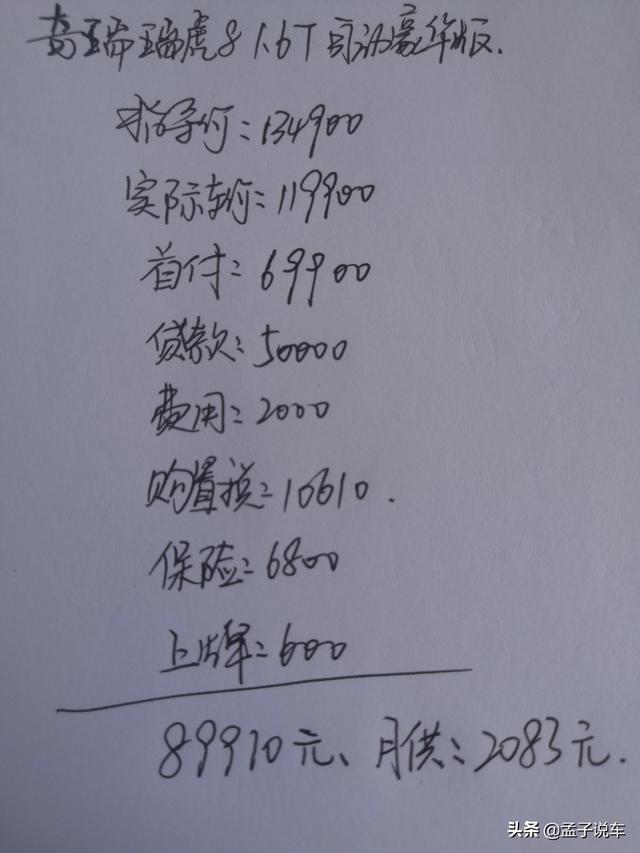 奇瑞瑞虎8 1.6T自动豪华版.
指导价:134900
实际车价:119900
首付:69900
贷款:50000
费用:2000
购置税:10610.
保险:6800
上牌:600
89910元、月供:2083元.
头条 @孟子说车